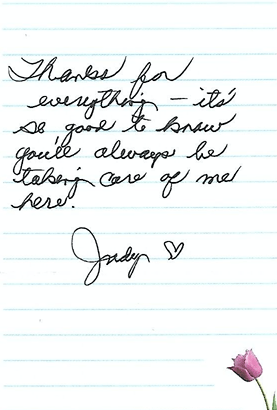 Thanks for
everything – it's
so good to know
you'll always be
taking care of me
here.
Judy ♡